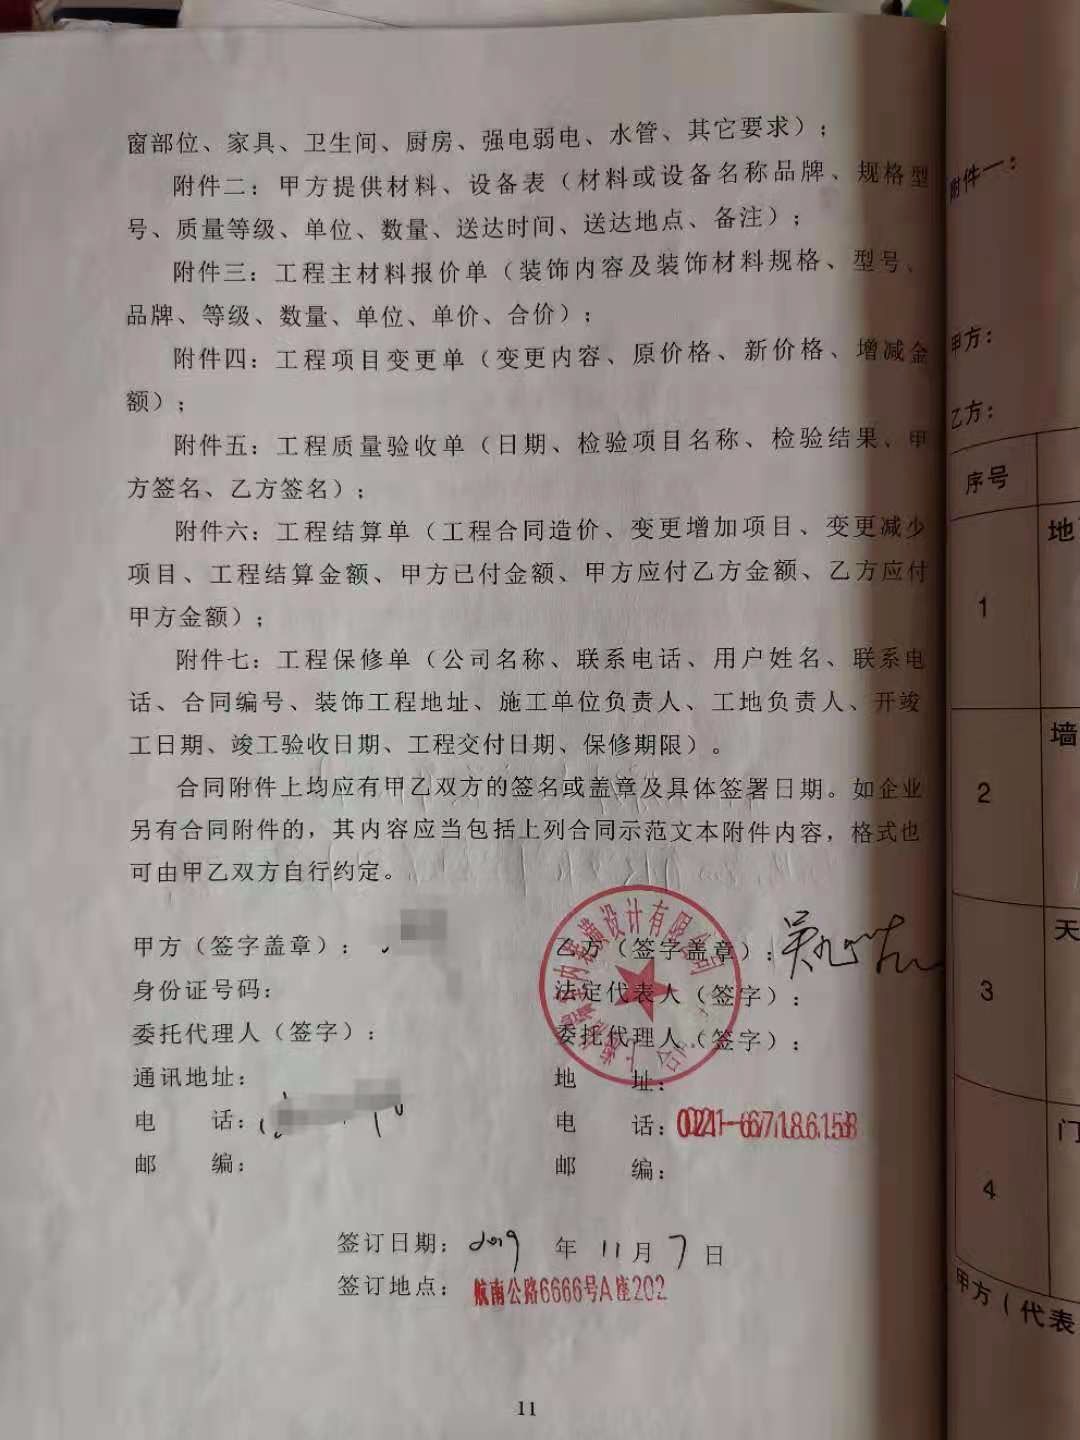 窗部位、家具、卫生间、厨房、强电弱电、水管、其它要求）；
附件二：甲方提供材料、设备表（材料或设备名称品牌、规格型
号、质量等级、单位、数量、送达时间、送达地点、备注）；
附件三：工程主材料报价单（装饰内容及装饰材料规格、型号、
品牌、等级、数量、单位、单价、合价）；
附件四：工程项目变更单（变更内容、原价格、新价格、增减金
额）；
附件五：工程质量验收单（日期、检验项目名称、检验结果、甲
方签名、乙方签名）；
附件六：工程结算单（工程合同造价、变更增加项目、变更减少
项目、工程结算金额、甲方已付金额、甲方应付乙方金额、乙方应付
甲方金额）；
附件七：工程保修单（公司名称、联系电话、用户姓名、联系电
话、合同编号、装饰工程地址、施工单位负责人、工地负责人、开竣
工日期、竣工验收日期、工程交付日期、保修期限）。
合同附件上均应有甲乙双方的签名或盖章及具体签署日期。如企业
另有合同附件的，其内容应当包括上列合同示范文本附件内容，格式也
可由甲乙双方自行约定。
甲方（签字盖章）：
身份证号码：
委托代理人（签字）：
通讯地址：
电 话：
邮 编：
乙方（签字盖章）：
法定代表人（签字）：
委托代理人（签字）：
地 址：
电 话：
邮 编：
室内装潢设计有限公司
签订日期：2019 年 11 月 7 日
签订地点：航南公路6666号A座202
11
附件一：
甲方：
乙方：
序号
1
地
2
墙
3
天
4
门
甲方（代表